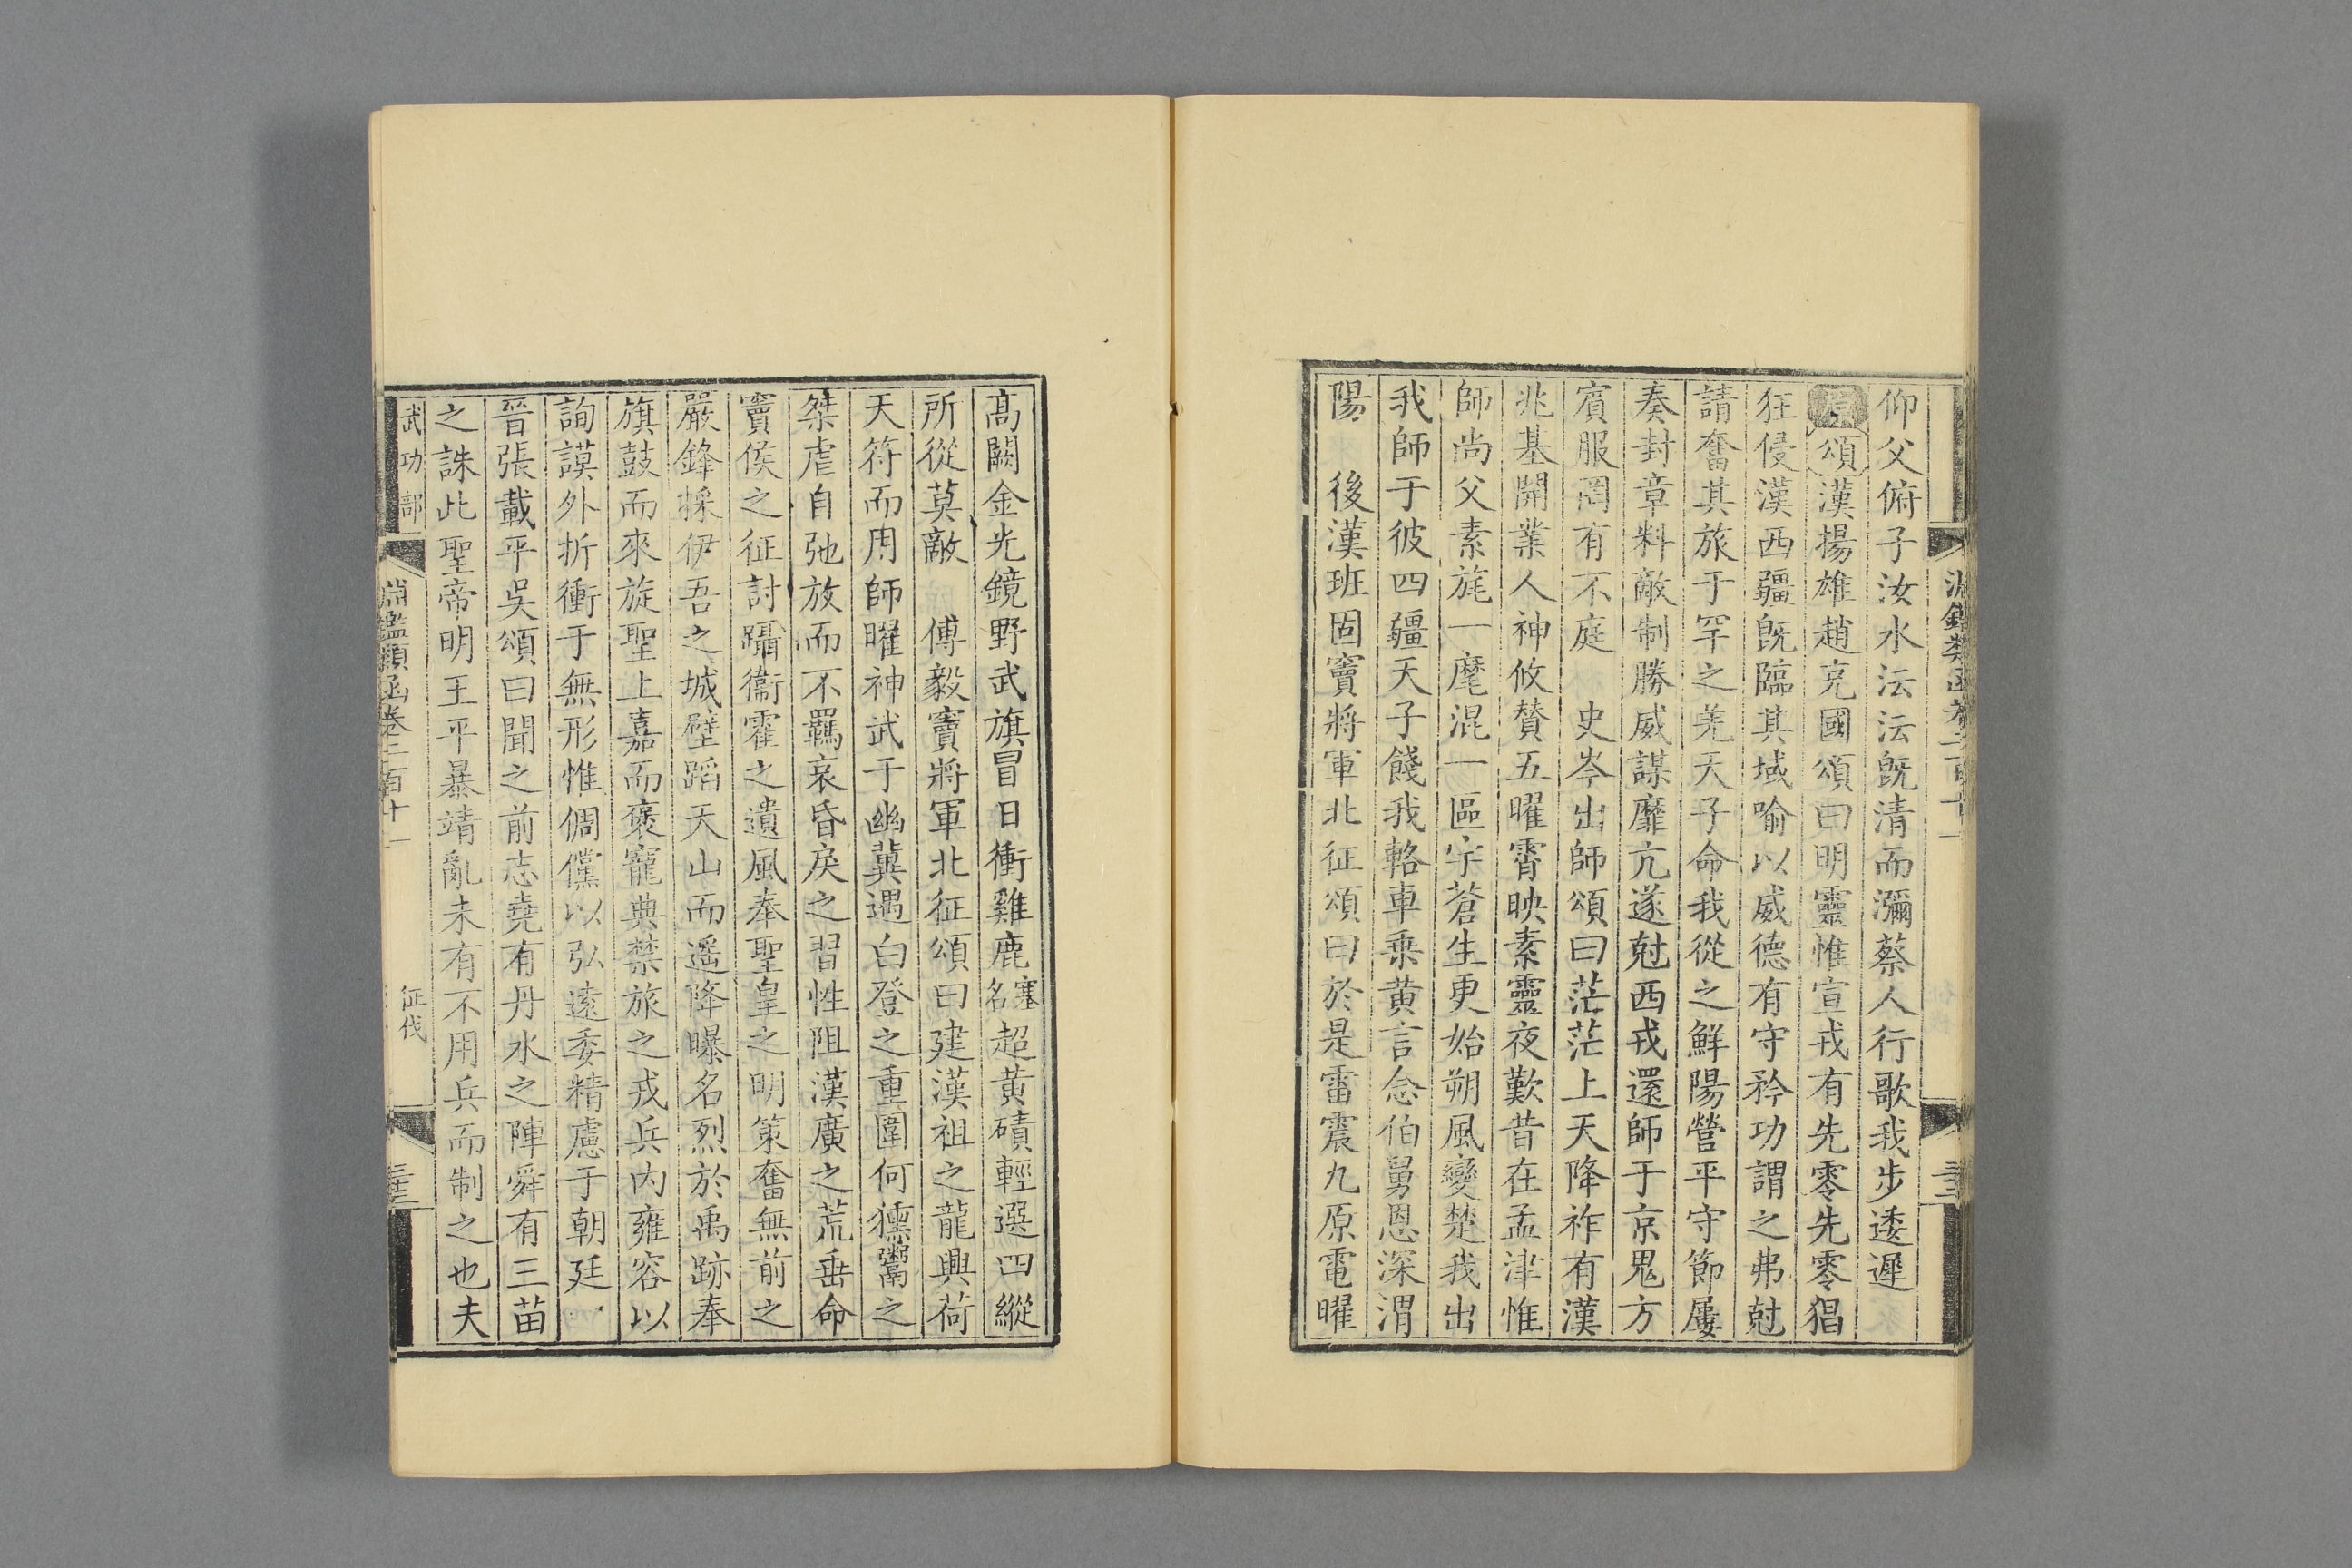 仰父俯子汝水沄沄旣清而瀰蔡人行歌我步逶遲
原頌漢揚雄趙充國頌曰明靈惟宣戎有先零先零猖
狂侵漢西疆旣臨其域喻以威德有守矜功謂之弗尅
請奮其旅于罕之羌天子命我從之鮮陽營平守節屢
奏封章料敵制勝威謀靡亢遂尅西戎還師于京鬼方
賓服罔有不庭　史岑出師頌曰茫茫上天降祚有漢
兆基開業人神攸贊五曜霄映素靈夜歎昔在孟津惟
師尚父素旄一麾混一區宇蒼生更始朔風變楚我出
我師于彼四疆天子餞我輅車乗黃言念伯舅恩深渭
陽　後漢班固竇將軍北征頌曰於是雷震九原電曜
高闕金光鏡野武旗冒日衝雞鹿塞名超黃磧輕選四縱
所從莫敵　傅毅竇將軍北征頌曰建漢祖之龍興荷
天符而用師曜神武于幽冀遇白登之重圍何獯鬻之
桀虐自弛放而不羈哀昏戾之習性阻漢廣之荒垂命
竇侯之征討躡衞霍之遺風奉聖皇之明策奮無前之
嚴鋒採伊吾之城壁蹈天山而遥降曝名烈於禹跡奉
旗鼓而來旋聖上嘉而褒寵典禁旅之戎兵内雍容以
詢謨外折衝于無形惟倜儻以弘遠委精慮于朝廷
晉張載平吳頌曰聞之前志堯有丹水之陣舜有三苗
之誅此聖帝明王平暴靖亂未有不用兵而制之也夫
武功部
淵鑑類函卷二百十一
征伐
三十三